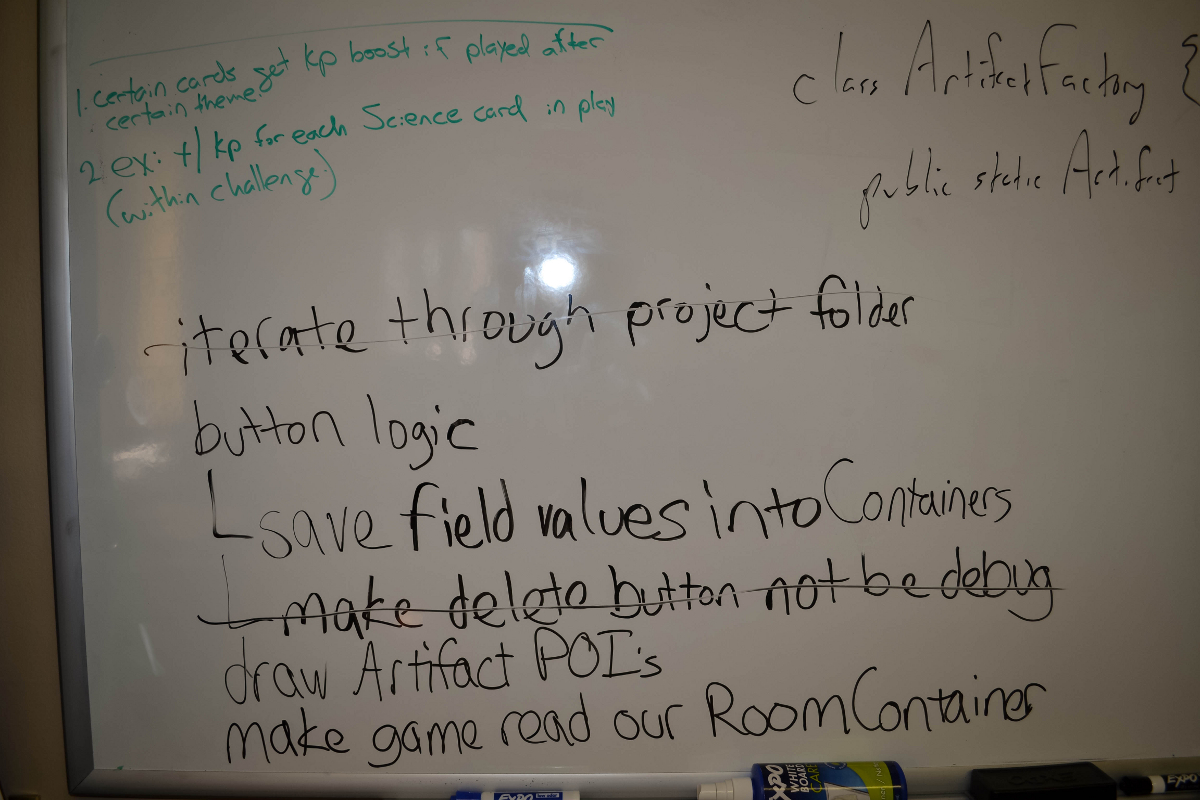 1. certain cards get kp boost if played after
certain theme.
2 ex: +1 kp for each Science card in play
(within challenge.)
class ArtifactFactory {
public static Artifact
iterate through project folder
button logic
save field values into Containers
make delete button not be debug
draw Artifact POI's
make game read our RoomContainer
EXPO
EXPO
WHITE
BOARD
CARE
EXPO